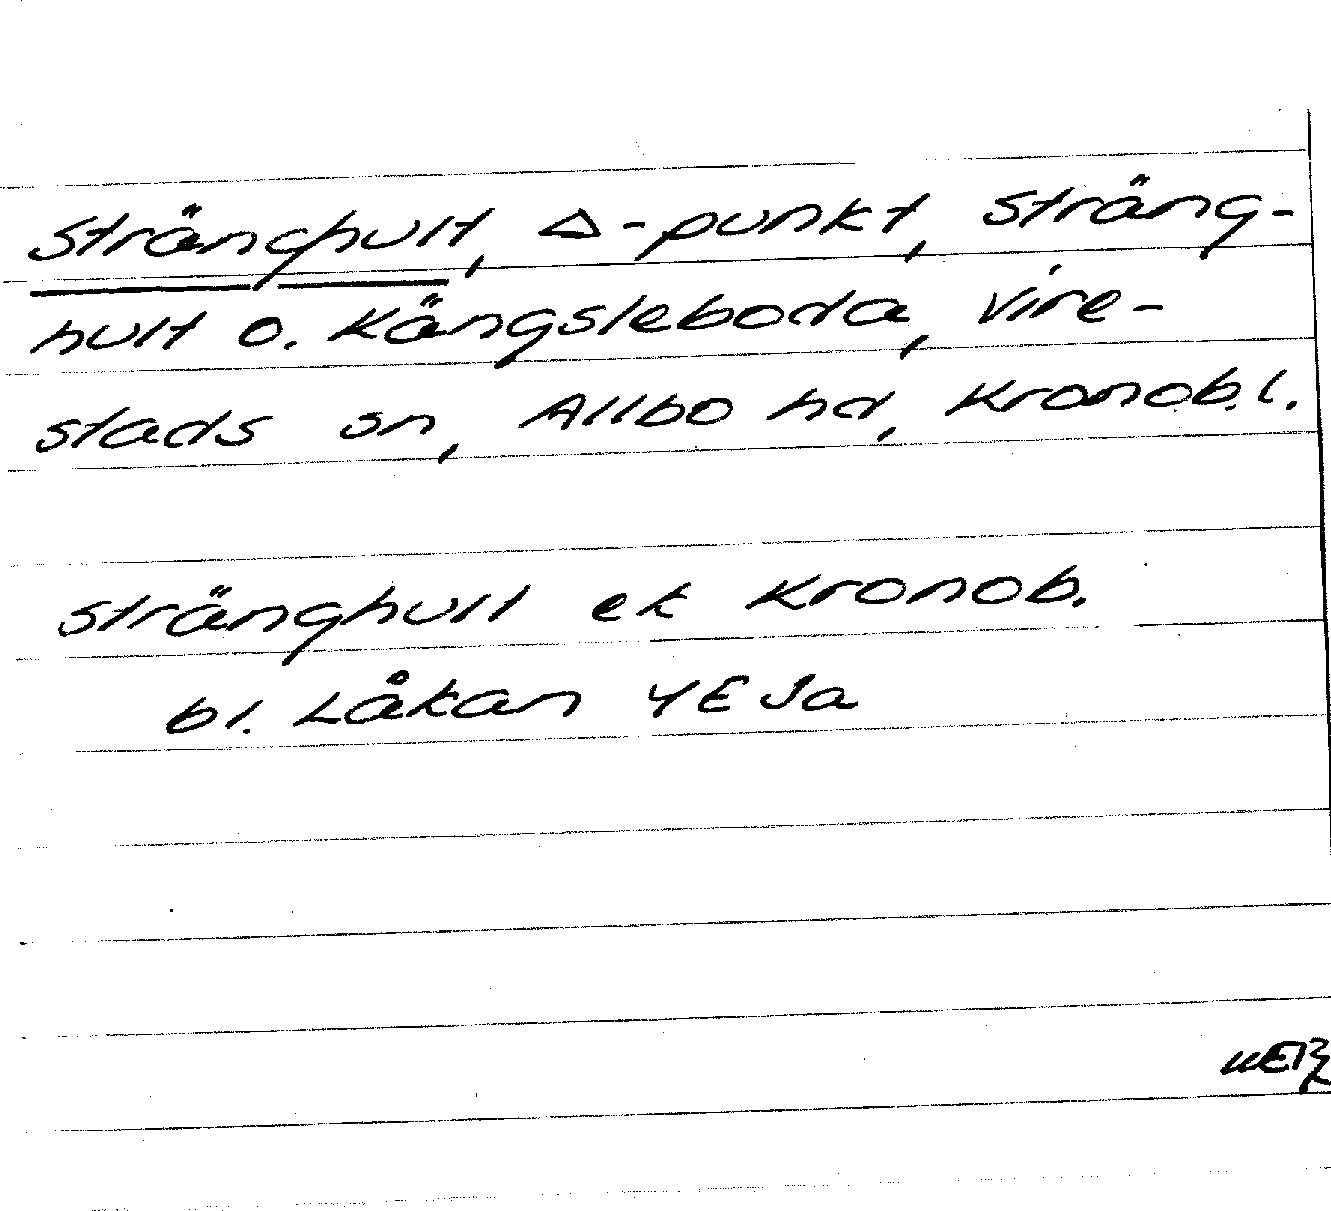 Stränghult, Δ-punkt, Sträng-
hult o. Kängsleboda, Vire-
stads sn, Allbo hd, Kronob. l.
Stränghult ek Kronob.
bl. Låkan 4E Ja